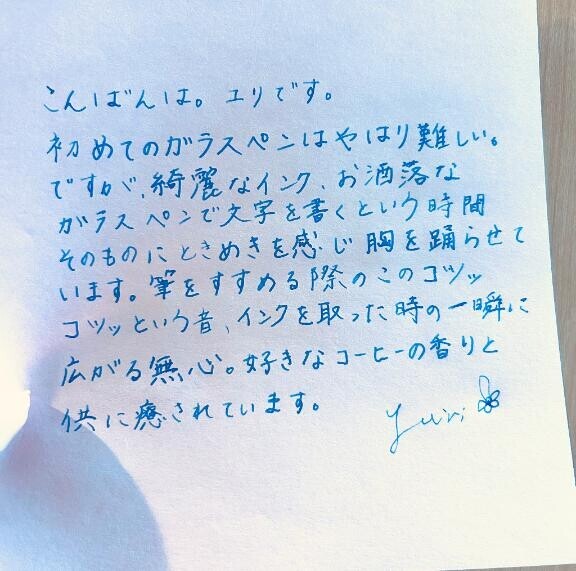 こんばんは。ユリです。
初めてのガラスペンはやはり難しい。
ですが、綺麗なインク、お洒落な
ガラスペンで文字を書くという時間
そのものにときめきを感じ胸を踊らせて
います。筆をすすめる際のこのコツッ
コツッという音、インクを取った時の一瞬に
広がる無心。好きなコーヒーの香りと
供に癒されています。
Yuri